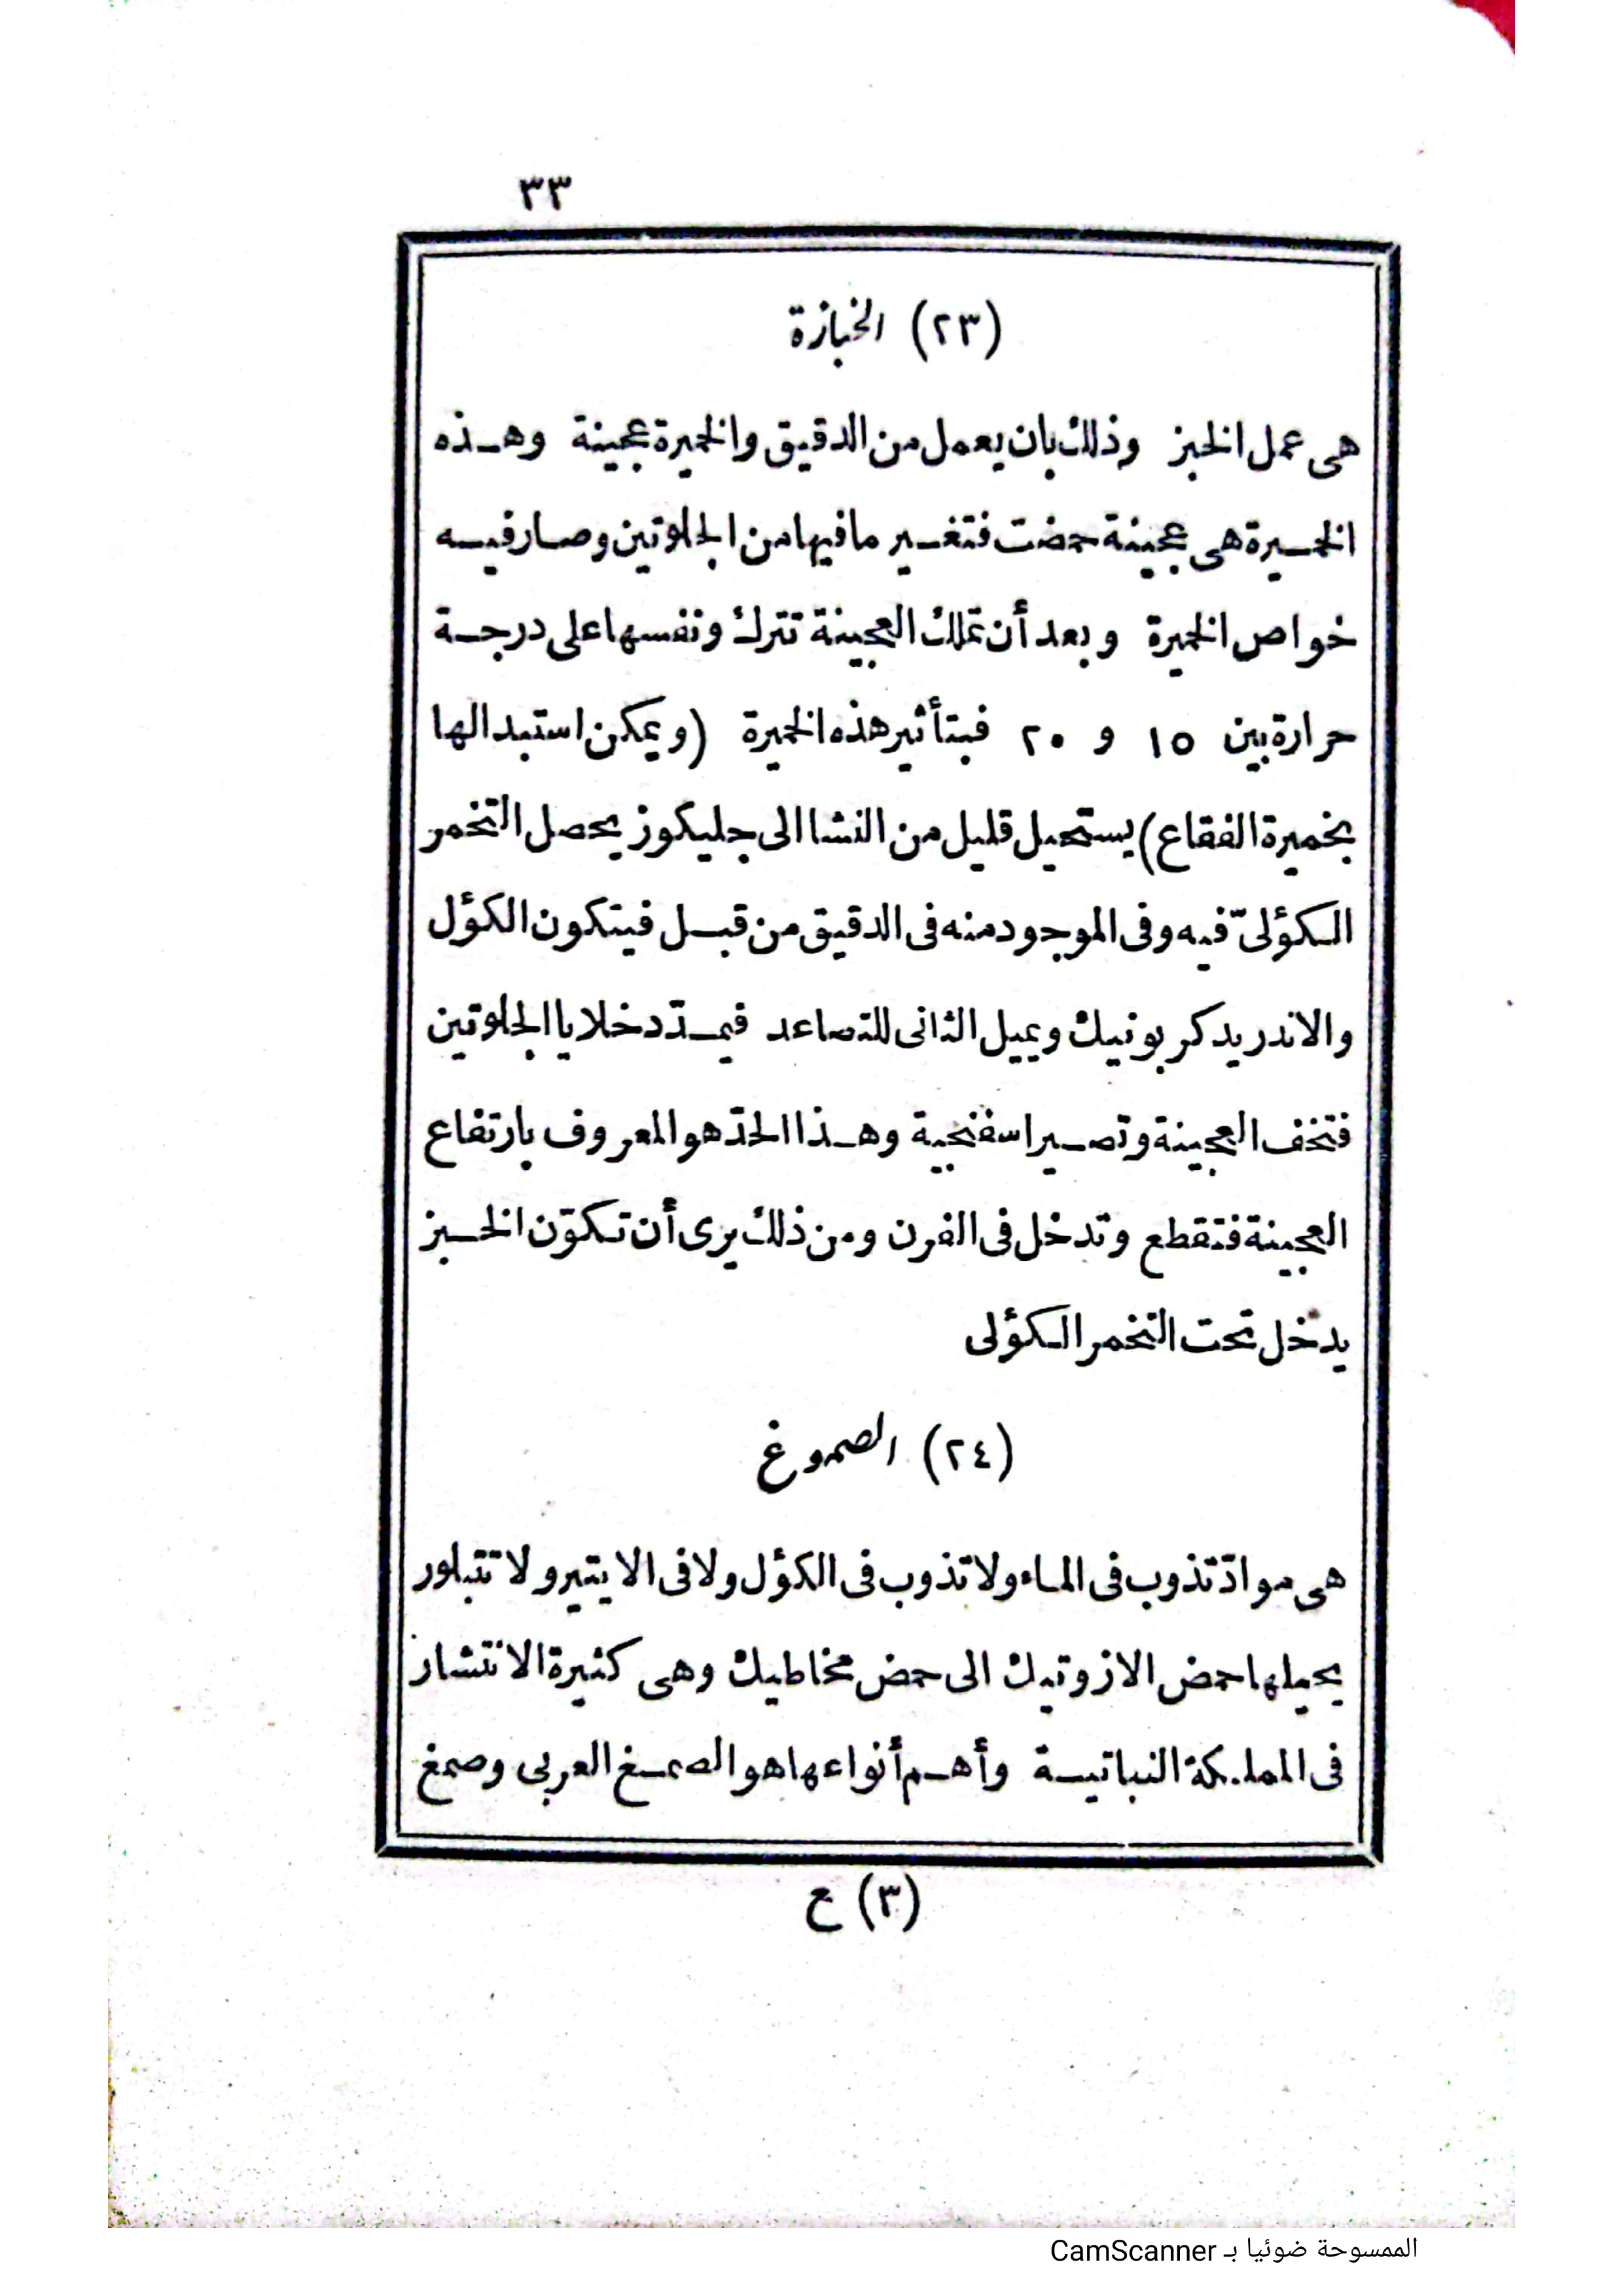 ٣٣
(٢٣) الخبازة
هى عمل الخبز وذلك بان يعمل من الدقيق والخميرة عجينة وهذه
الخميرة هى عجينة حمضت فتغير ما فيها من الجلوتين وصار فيه
خواص الخميرة وبعد أن تملك العجينة تترك ونفسها على درجة
حرارة بين ١٥ و ٢٠ فبتأثير هذه الخميرة (ويمكن استبدالها
بخميرة الفقاع) يستحيل قليل من النشا الى جليكوز يحصل التخمر
الكؤلىّ فيه وفى الموجود منه فى الدقيق من قبل فيتكون الكؤل
والاندريد كربونيك ويميل الثانى للتصاعد فيمدّد خلايا الجلوتين
فتخف العجينة وتصير اسفنجية وهذا الحدّ هو المعروف بارتفاع
العجينة فتقطع وتدخل فى الفرن ومن ذلك يرى أن تكوّن الخبز
يدخل تحت التخمر الكؤلى
(٢٤) الصموغ
هى موادّ تذوب فى الماء ولا تذوب فى الكؤل ولا فى الايتير ولا تتبلور
يحيلها حمض الازوتيك الى حمض مخاطيك وهى كثيرة الانتشار
فى المملكة النباتية وأهم أنواعها هو الصمغ العربى وصمغ
(٣) ع
الممسوحة ضوئيا بـ CamScanner